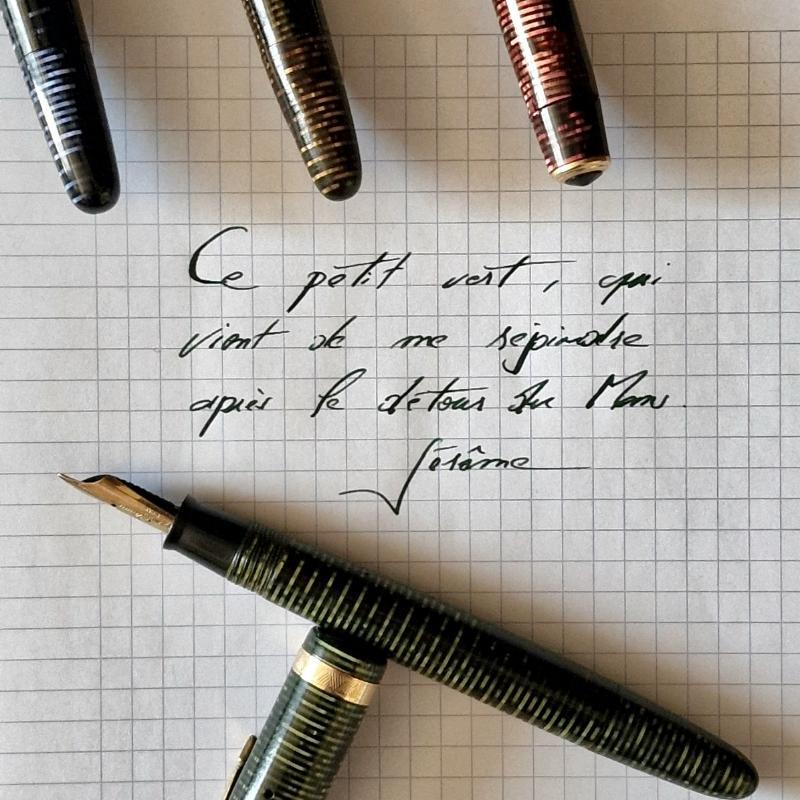 Ce petit vert, qui
vient de me rejoindre
après le détour du Mans.
Jérôme